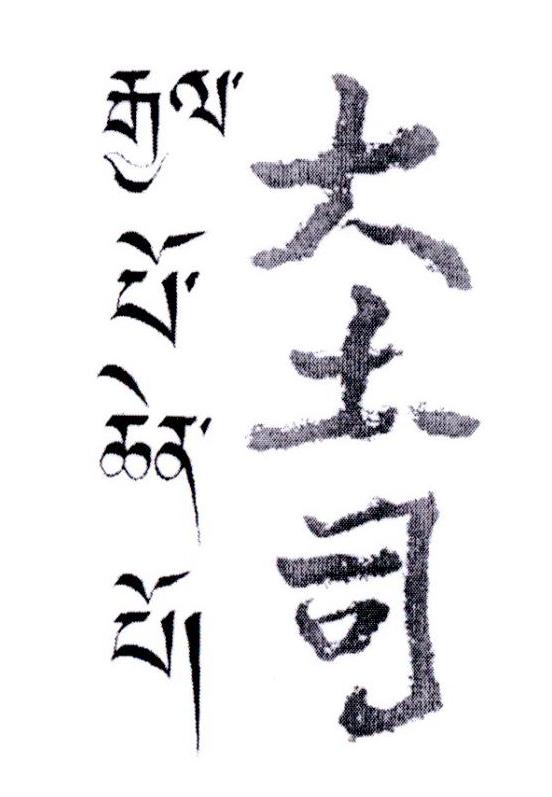 大土司
རྒྱལ་པོ་ཆེན་པོ།